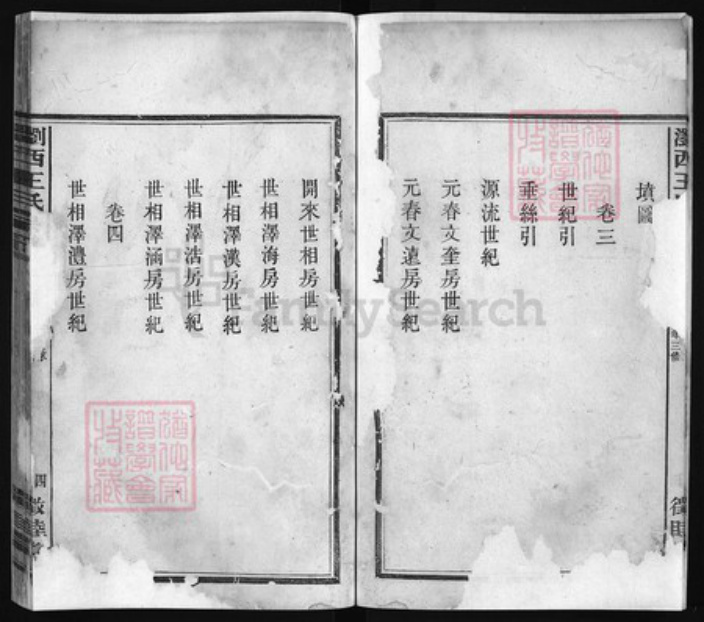 墳圖
卷三
世紀引
垂絲引
源流世紀
元春文奎房世紀
元春文遠房世紀
開來世相房世紀
世相澤海房世紀
世相澤漢房世紀
世相澤浩房世紀
世相澤涵房世紀
卷四
世相澤澧房世紀
瀏西王氏
四
敦睦堂
FamilySearch